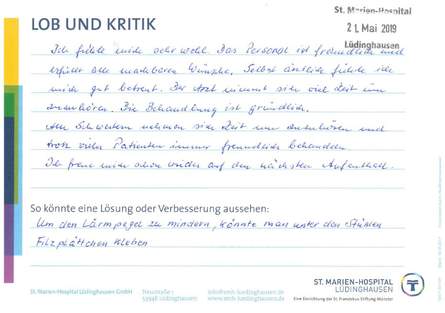 LOB UND KRITIK
St. Marien-Hospital
21. Mai 2019
Lüdinghausen
Ich fühle mich sehr wohl. Das Personal ist freundlich und
erfüllt alle machbaren Wünsche. Selbst ärztlich fühle ich
mich gut betreut. Der Arzt nimmt sich viel Zeit zum
zuzuhören. Die Behandlung ist gründlich.
Alle Schwestern nehmen sich Zeit zum zuzuhören und
trotz vieler Patienten immer freundlich behandeln.
Ich freue mich schon wieder auf den nächsten Aufenthalt.
So könnte eine Lösung oder Verbesserung aussehen:
Um den Lärmpegel zu mindern, könnte man unter den Stühlen
Filzplättchen kleben
St. Marien-Hospital Lüdinghausen GmbH
Neustraße 1
59348 Lüdinghausen
info@smh-luedinghausen.de
www.smh-luedinghausen.de
ST. MARIEN-HOSPITAL
LÜDINGHAUSEN
Eine Einrichtung der St. Franziskus-Stiftung Münster